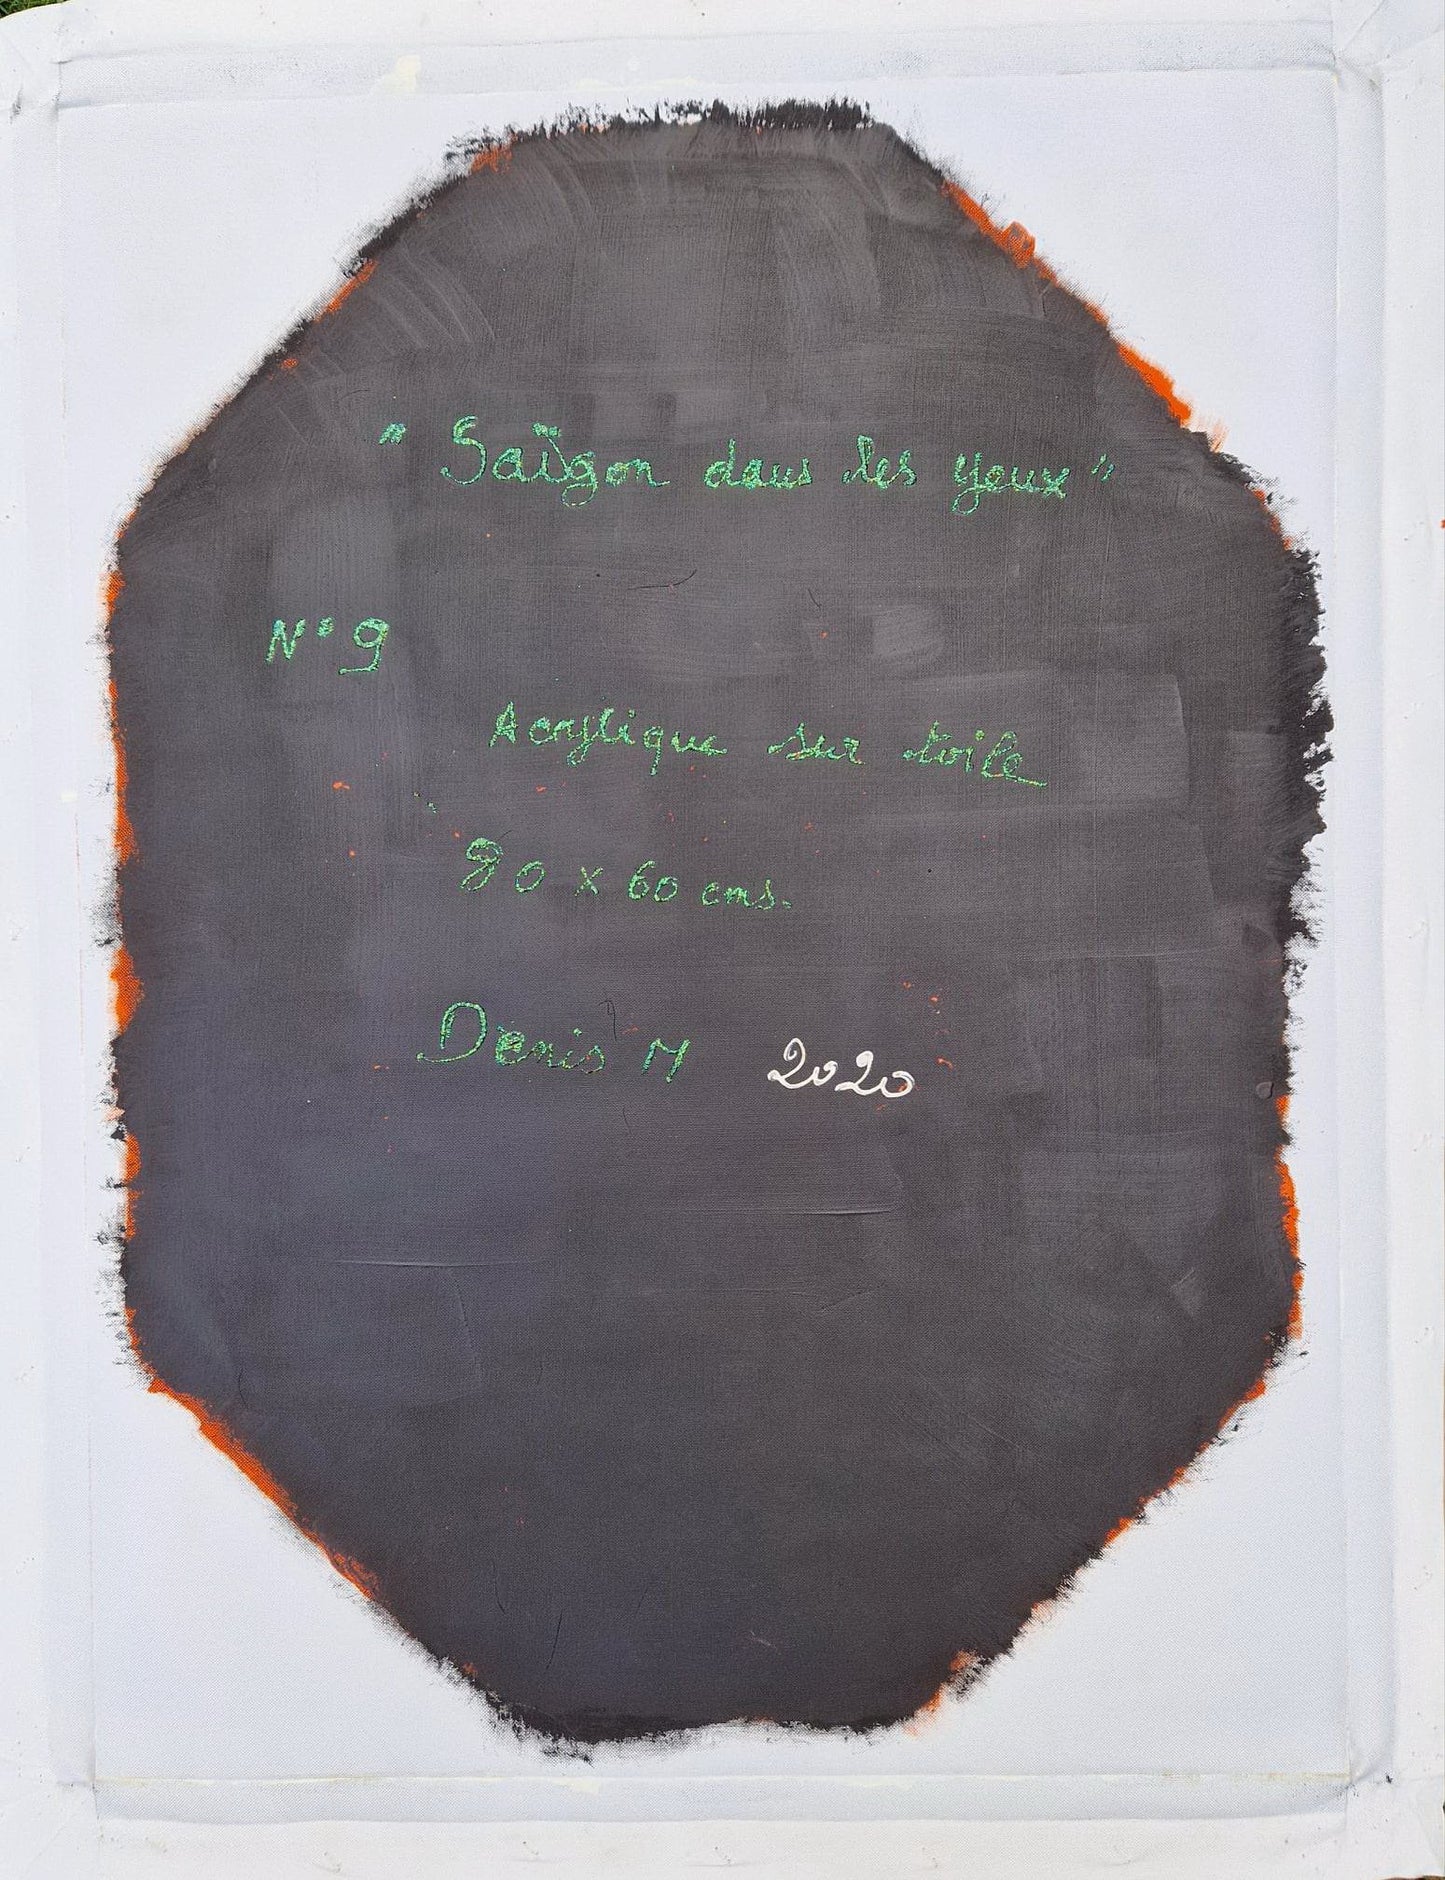 "Saïgon dans les yeux"
N° 9
Acrylique sur toile
80 x 60 cms.
Denis M 2020